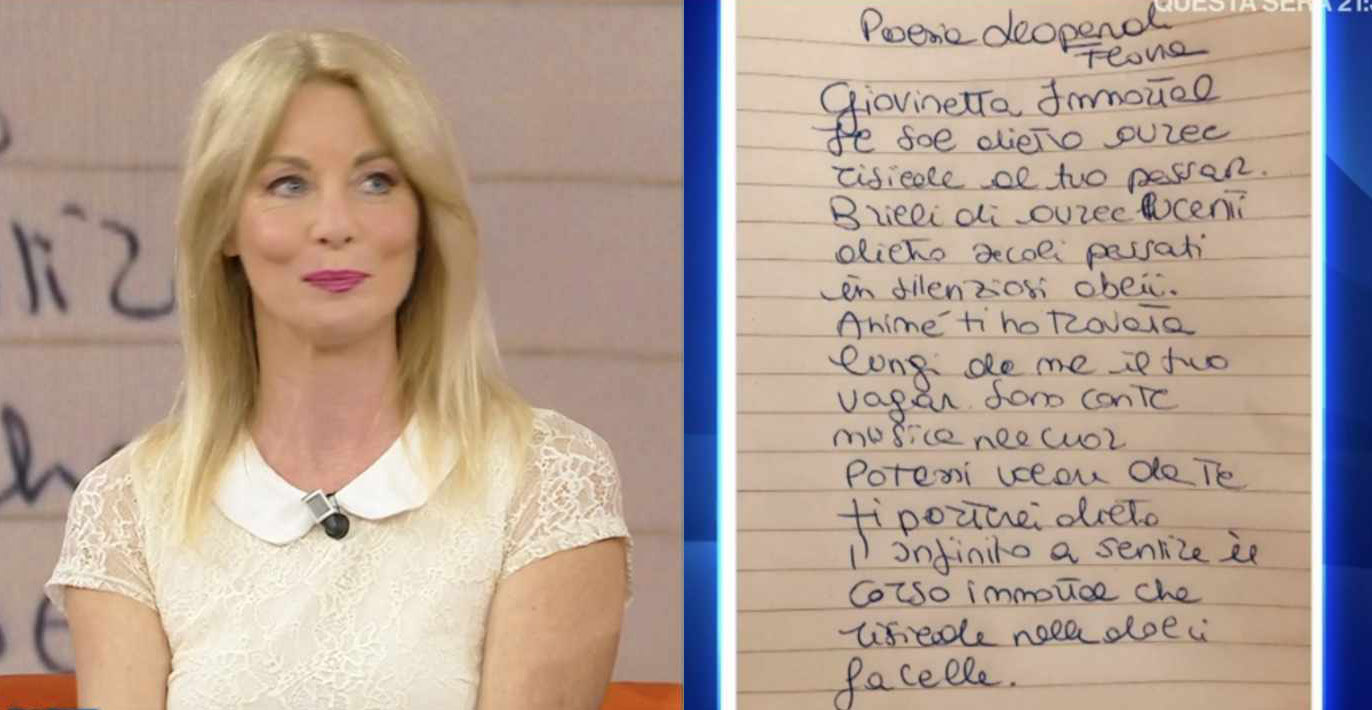 QUESTA SERA 21:
Poesia Leopardi
Giovinetta Immortal
Se sol dietro aurec
risiede al tuo passar.
Brilli di aurec lucenti
dietro secoli passati
in silenziosi oblii.
Animé ti ho trovata
lungi da me il tuo
vagar. Sono conte
musica nel cuor
Potessi volar da te
ti porterei dietro
l'infinito a sentire il
corso immortal che
risiede nelle dolci
facelle.